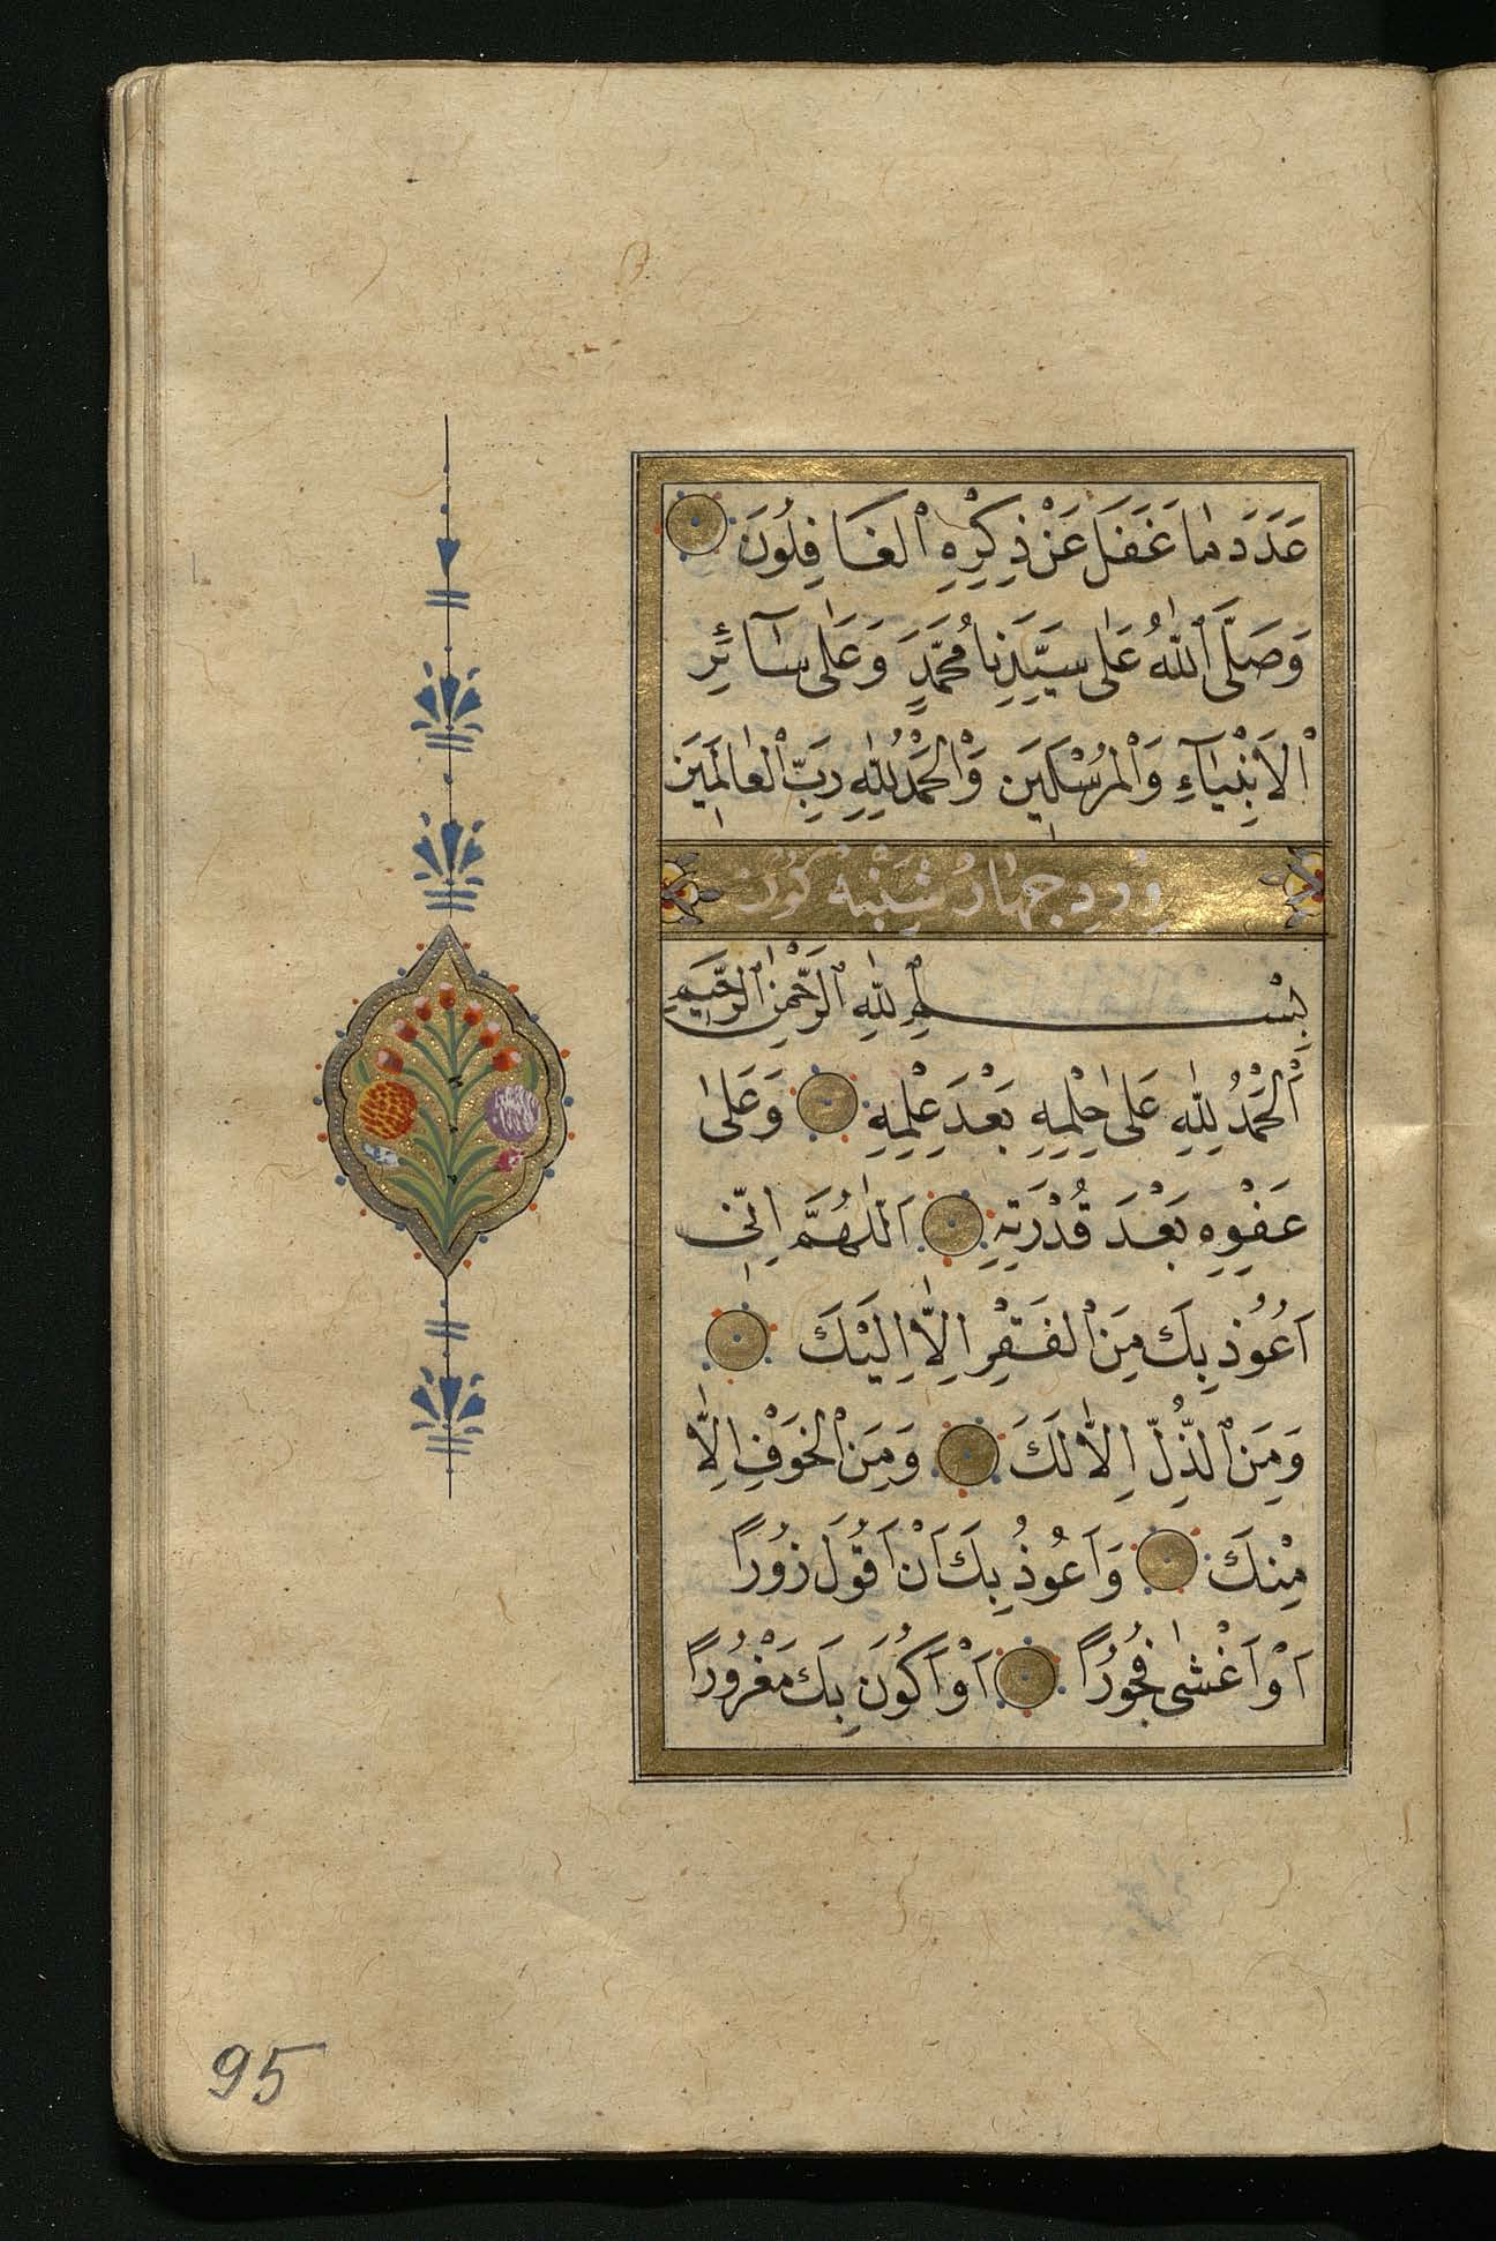 عَدَدَ مَا غَفَلَ عَنْ ذِكْرِهِ الْغَافِلُونَ
وَصَلَّى اللّٰهُ عَلٰى سَيِّدِنَا مُحَمَّدٍ وَعَلٰى سَآئِرِ
الْاَنْبِيَآءِ وَالْمُرْسَلِينَ وَالْحَمْدُ لِلّٰهِ رَبِّ الْعَالَمِينَ
وِرْدِ جِهَارْ شَنْبِهْ كُونْ
بِسْمِ اللّٰهِ الرَّحْمٰنِ الرَّحِيمِ
اَلْحَمْدُ لِلّٰهِ عَلٰى حِلْمِهِ بَعْدَ عِلْمِهِ وَعَلٰى
عَفْوِهِ بَعْدَ قُدْرَتِهِ اَللّٰهُمَّ اِنِّى
اَعُوذُ بِكَ مِنَ الْفَقْرِ اِلَّا اِلَيْكَ
وَمِنَ الذُّلِّ اِلَّا لَكَ وَمِنَ الْخَوْفِ اِلَّا
مِنْكَ وَاَعُوذُ بِكَ اَنْ اَقُولَ زُورًا
اَوْ اَغْشٰى فُجُورًا اَوْ اَكُونَ بِكَ مَغْرُورًا
95